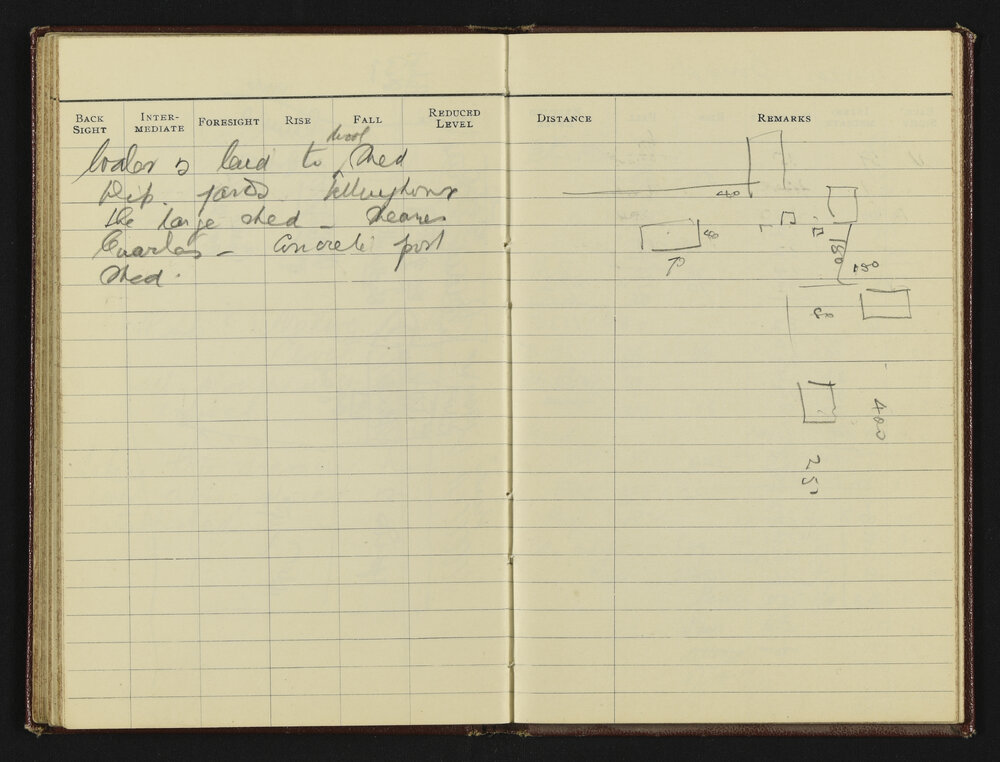 BACK SIGHT INTER-MEDIATE FORESIGHT RISE FALL REDUCED LEVEL DISTANCE REMARKS
wool
Water is laid to Shed
Dip. yards.
the large shed - Shearers
Quarters - Concrete post
Shed.
40
70
80
180
150
400
250